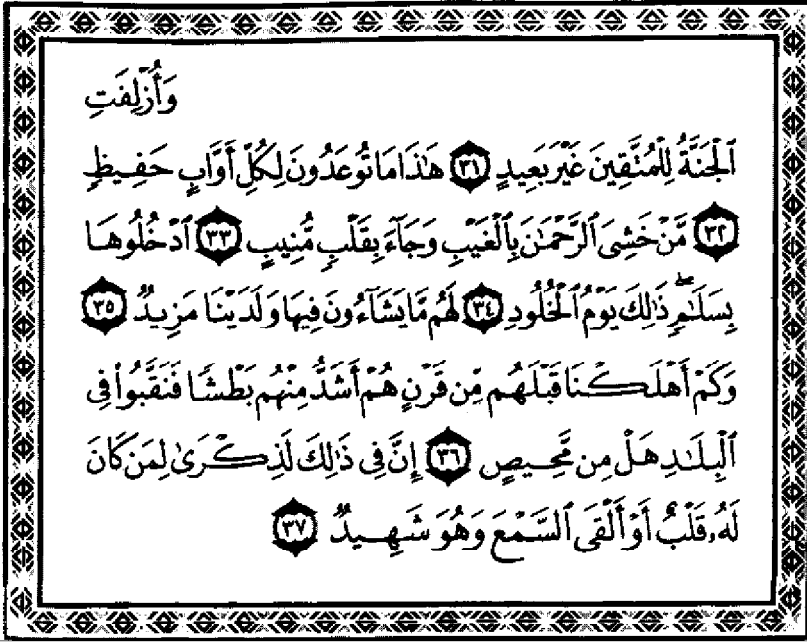 وَأُزْلِفَتِ
ٱلْجَنَّةُ لِلْمُتَّقِينَ غَيْرَ بَعِيدٍ ٣١ هَٰذَا مَا تُوعَدُونَ لِكُلِّ أَوَّابٍ حَفِيظٍ
٣٢ مَّنْ خَشِىَ ٱلرَّحْمَٰنَ بِٱلْغَيْبِ وَجَآءَ بِقَلْبٍ مُّنِيبٍ ٣٣ ٱدْخُلُوهَا
بِسَلَٰمٍۖ ذَٰلِكَ يَوْمُ ٱلْخُلُودِ ٣٤ لَهُم مَّا يَشَآءُونَ فِيهَا وَلَدَيْنَا مَزِيدٌ ٣٥
وَكَمْ أَهْلَكْنَا قَبْلَهُم مِّن قَرْنٍ هُمْ أَشَدُّ مِنْهُم بَطْشًا فَنَقَّبُوا۟ فِى
ٱلْبِلَٰدِ هَلْ مِن مَّحِيصٍ ٣٦ إِنَّ فِى ذَٰلِكَ لَذِكْرَىٰ لِمَن كَانَ
لَهُۥ قَلْبٌ أَوْ أَلْقَى ٱلسَّمْعَ وَهُوَ شَهِيدٌ ٣٧